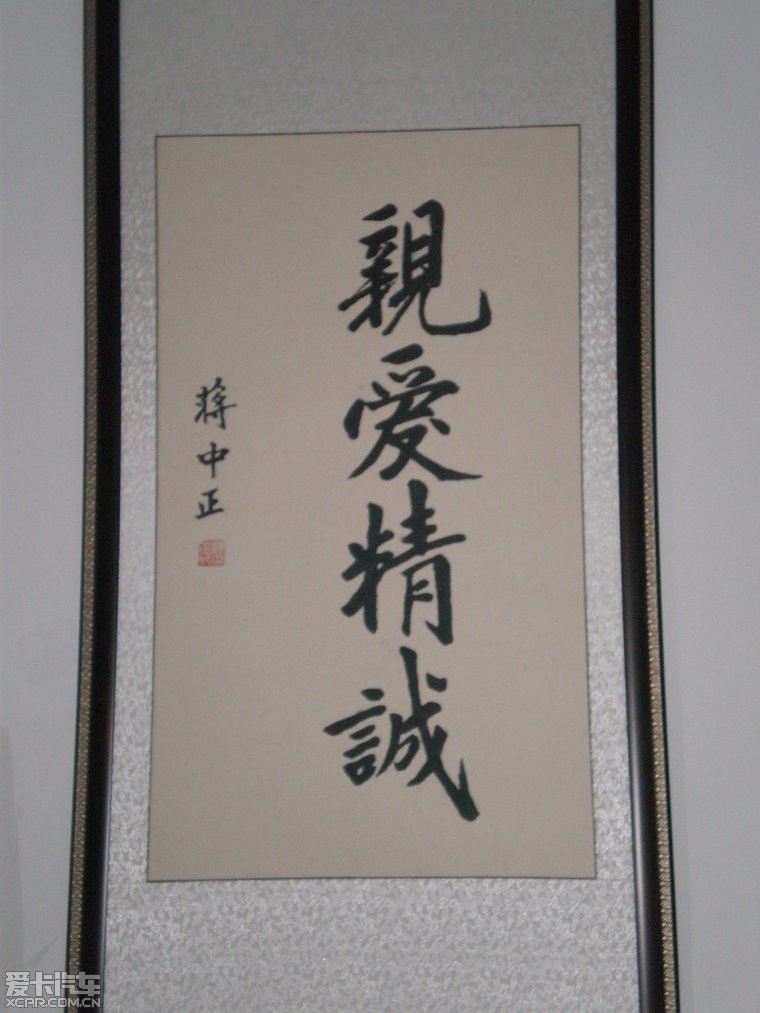 親愛精誠
蔣中正
爱卡汽车
XCAR.COM.CN